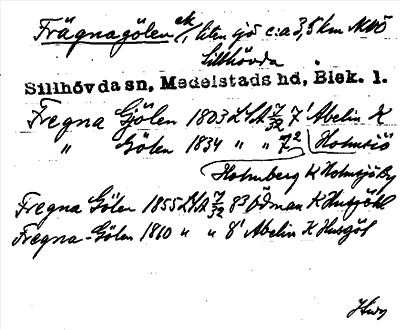 Frägnagölen ek/1 liten sjö c:a 3,5 km NNÖ
Sillhövda
Sillhövda sn, Medelstads hd, Blek. l.
Fregna Gjölen 1803 LSA 7/32 7¹ Abelin K
" Gölen 1834 " " 7² Holmsjö
Holmberg K Holmsjöby
Fregna Gölen 1855 LSA 7/32 8³ Ödman K
Fregna-Gölen 1860 " " 8¹ Abelin K Husgöl